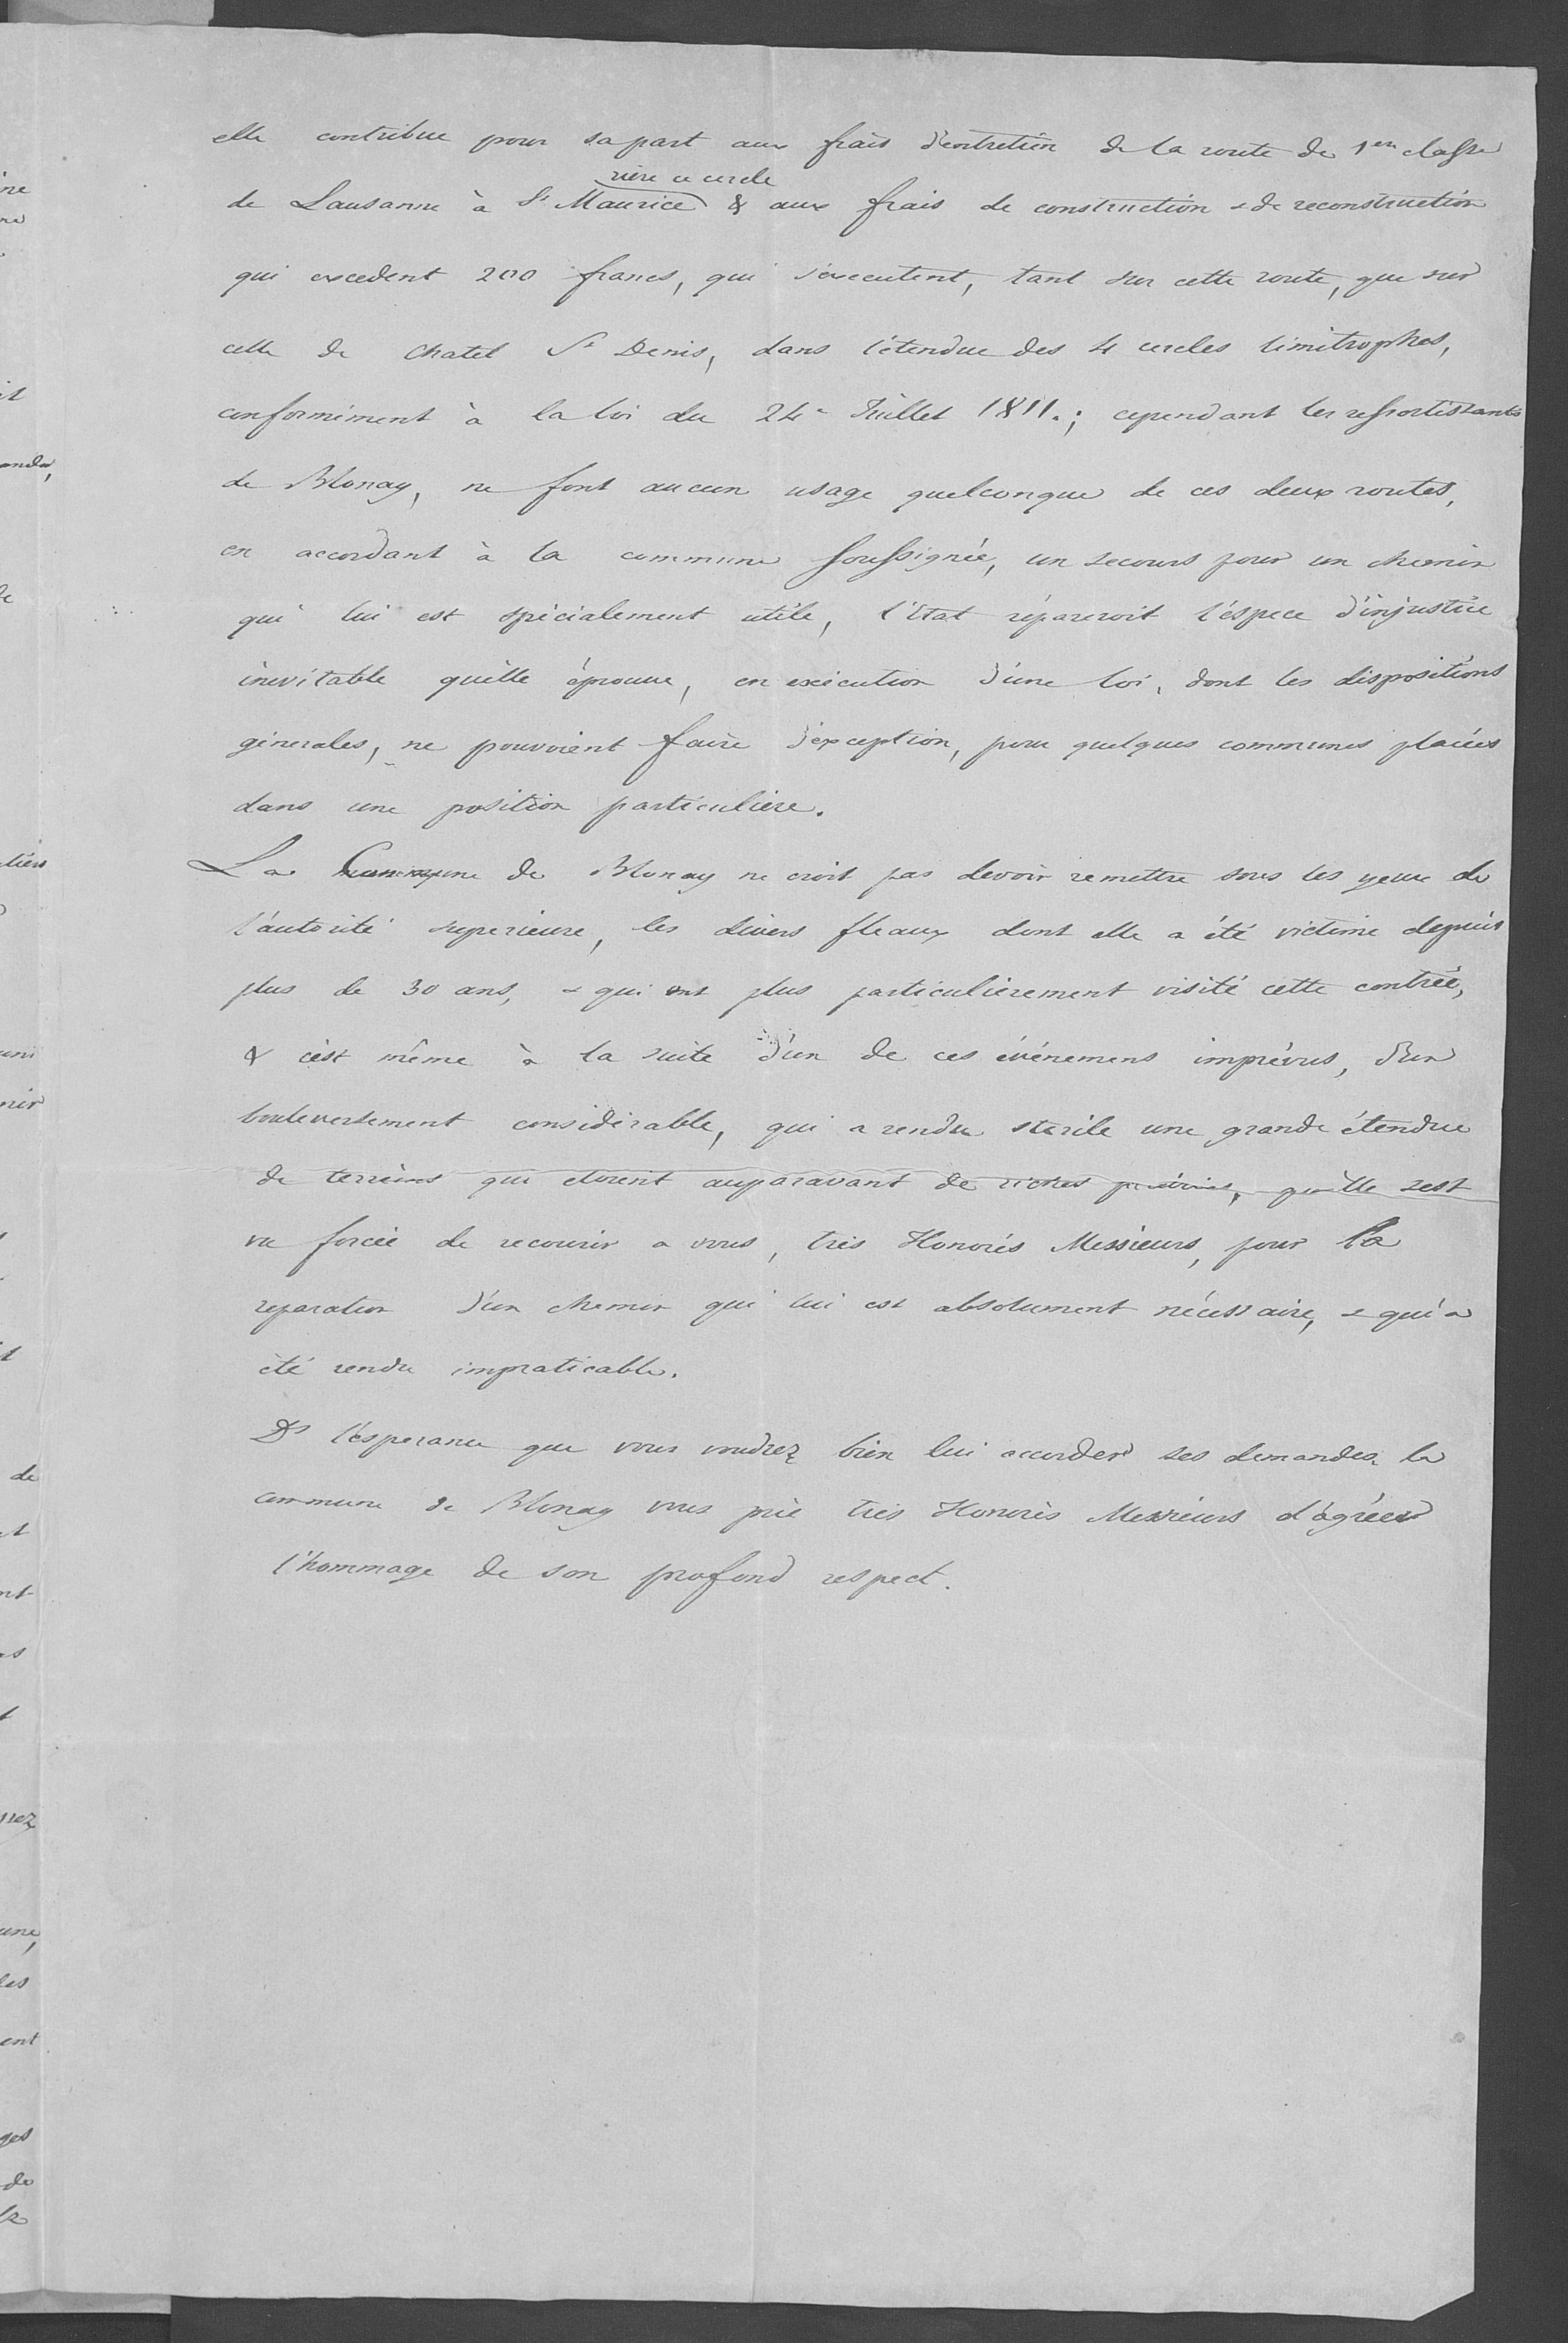 elle contribue pour sa part aux frais d'entretien de la route de 1ere classe
riere ce cercle
de Lausanne à St Maurice & aux frais de construction & de reconstruction
qui excedent 200 francs, qui s'executent, tant sur cette route, que sur
celle de Chatel St Denis, dans l'étendue des 4 cercles limitrophes,
conformément à la loi du 24e Juillet 1811.; cependant les ressortissants
de Blonay, ne font aucun usage quelconque de ces deux routes,
en accordant à la commune soussignée, un secours pour un chemin
qui lui est spécialement utile, l'Etat répareroit l'éspece d'injustice
inevitable qu'elle éprouve, en exécution d'une loi, dont les dispositions
génerales, ne pouvoient faire d'exception, pour quelques communes placées
dans une position particuliere.
La Commune de Blonay ne croit pas devoir remettre sous les yeux de
l'autorité superieure, les divers fleaux dont elle a été victime depuis
plus de 30 ans, & qui ont plus particulièrement visité cette contrée,
& c'est même à la suite d'un de ces événemens imprévus, d'un
bouleversement considérable, qui a rendu sterile une grande étendue
de terreins qui etoient auparavant de riches prairies, qu'elle s'est
vu forcée de recourir a vous, très Honorés Messieurs, pour la
reparation d'un chemin qui lui est absolument nécessaire, & qui a
été rendu impraticable.
Ds l'esperance que vous voudrez bien lui accorder ses demandes, la
commune de Blonay vous prie très Honorés Messieurs d'agréer
l'hommage de son profond respect.